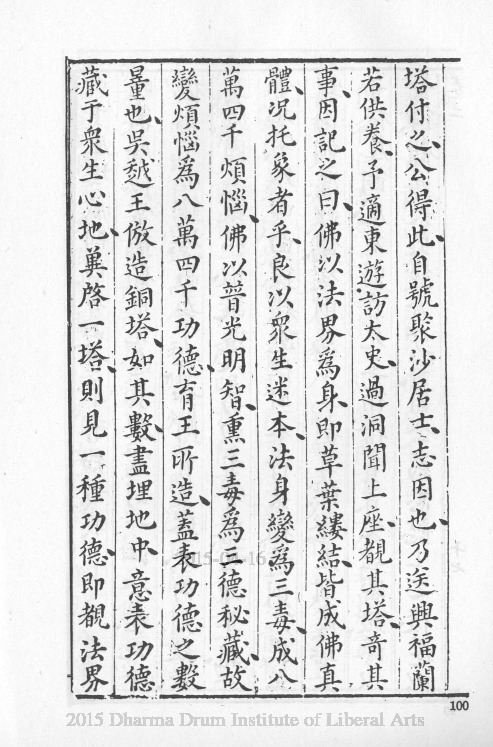 塔付之公得此自號聚沙居士志因也乃送興福蘭
若供養予適東遊訪太史過洞聞上座覩其塔奇其
事因記之曰佛以法界為身即草葉縷結皆成佛真
體况托象者乎良以眾生迷本法身變為三毒成八
萬四千煩惱佛以普光明智熏三毒為三德秘藏故
變煩惱為八萬四千功德育王所造蓋表功德之數
量也吳越王倣造銅塔如其數盡埋地中意表功德
藏于眾生心地兾啓一塔則見一種功德即覩法界
100
2015 Dharma Drum Institute of Liberal Arts